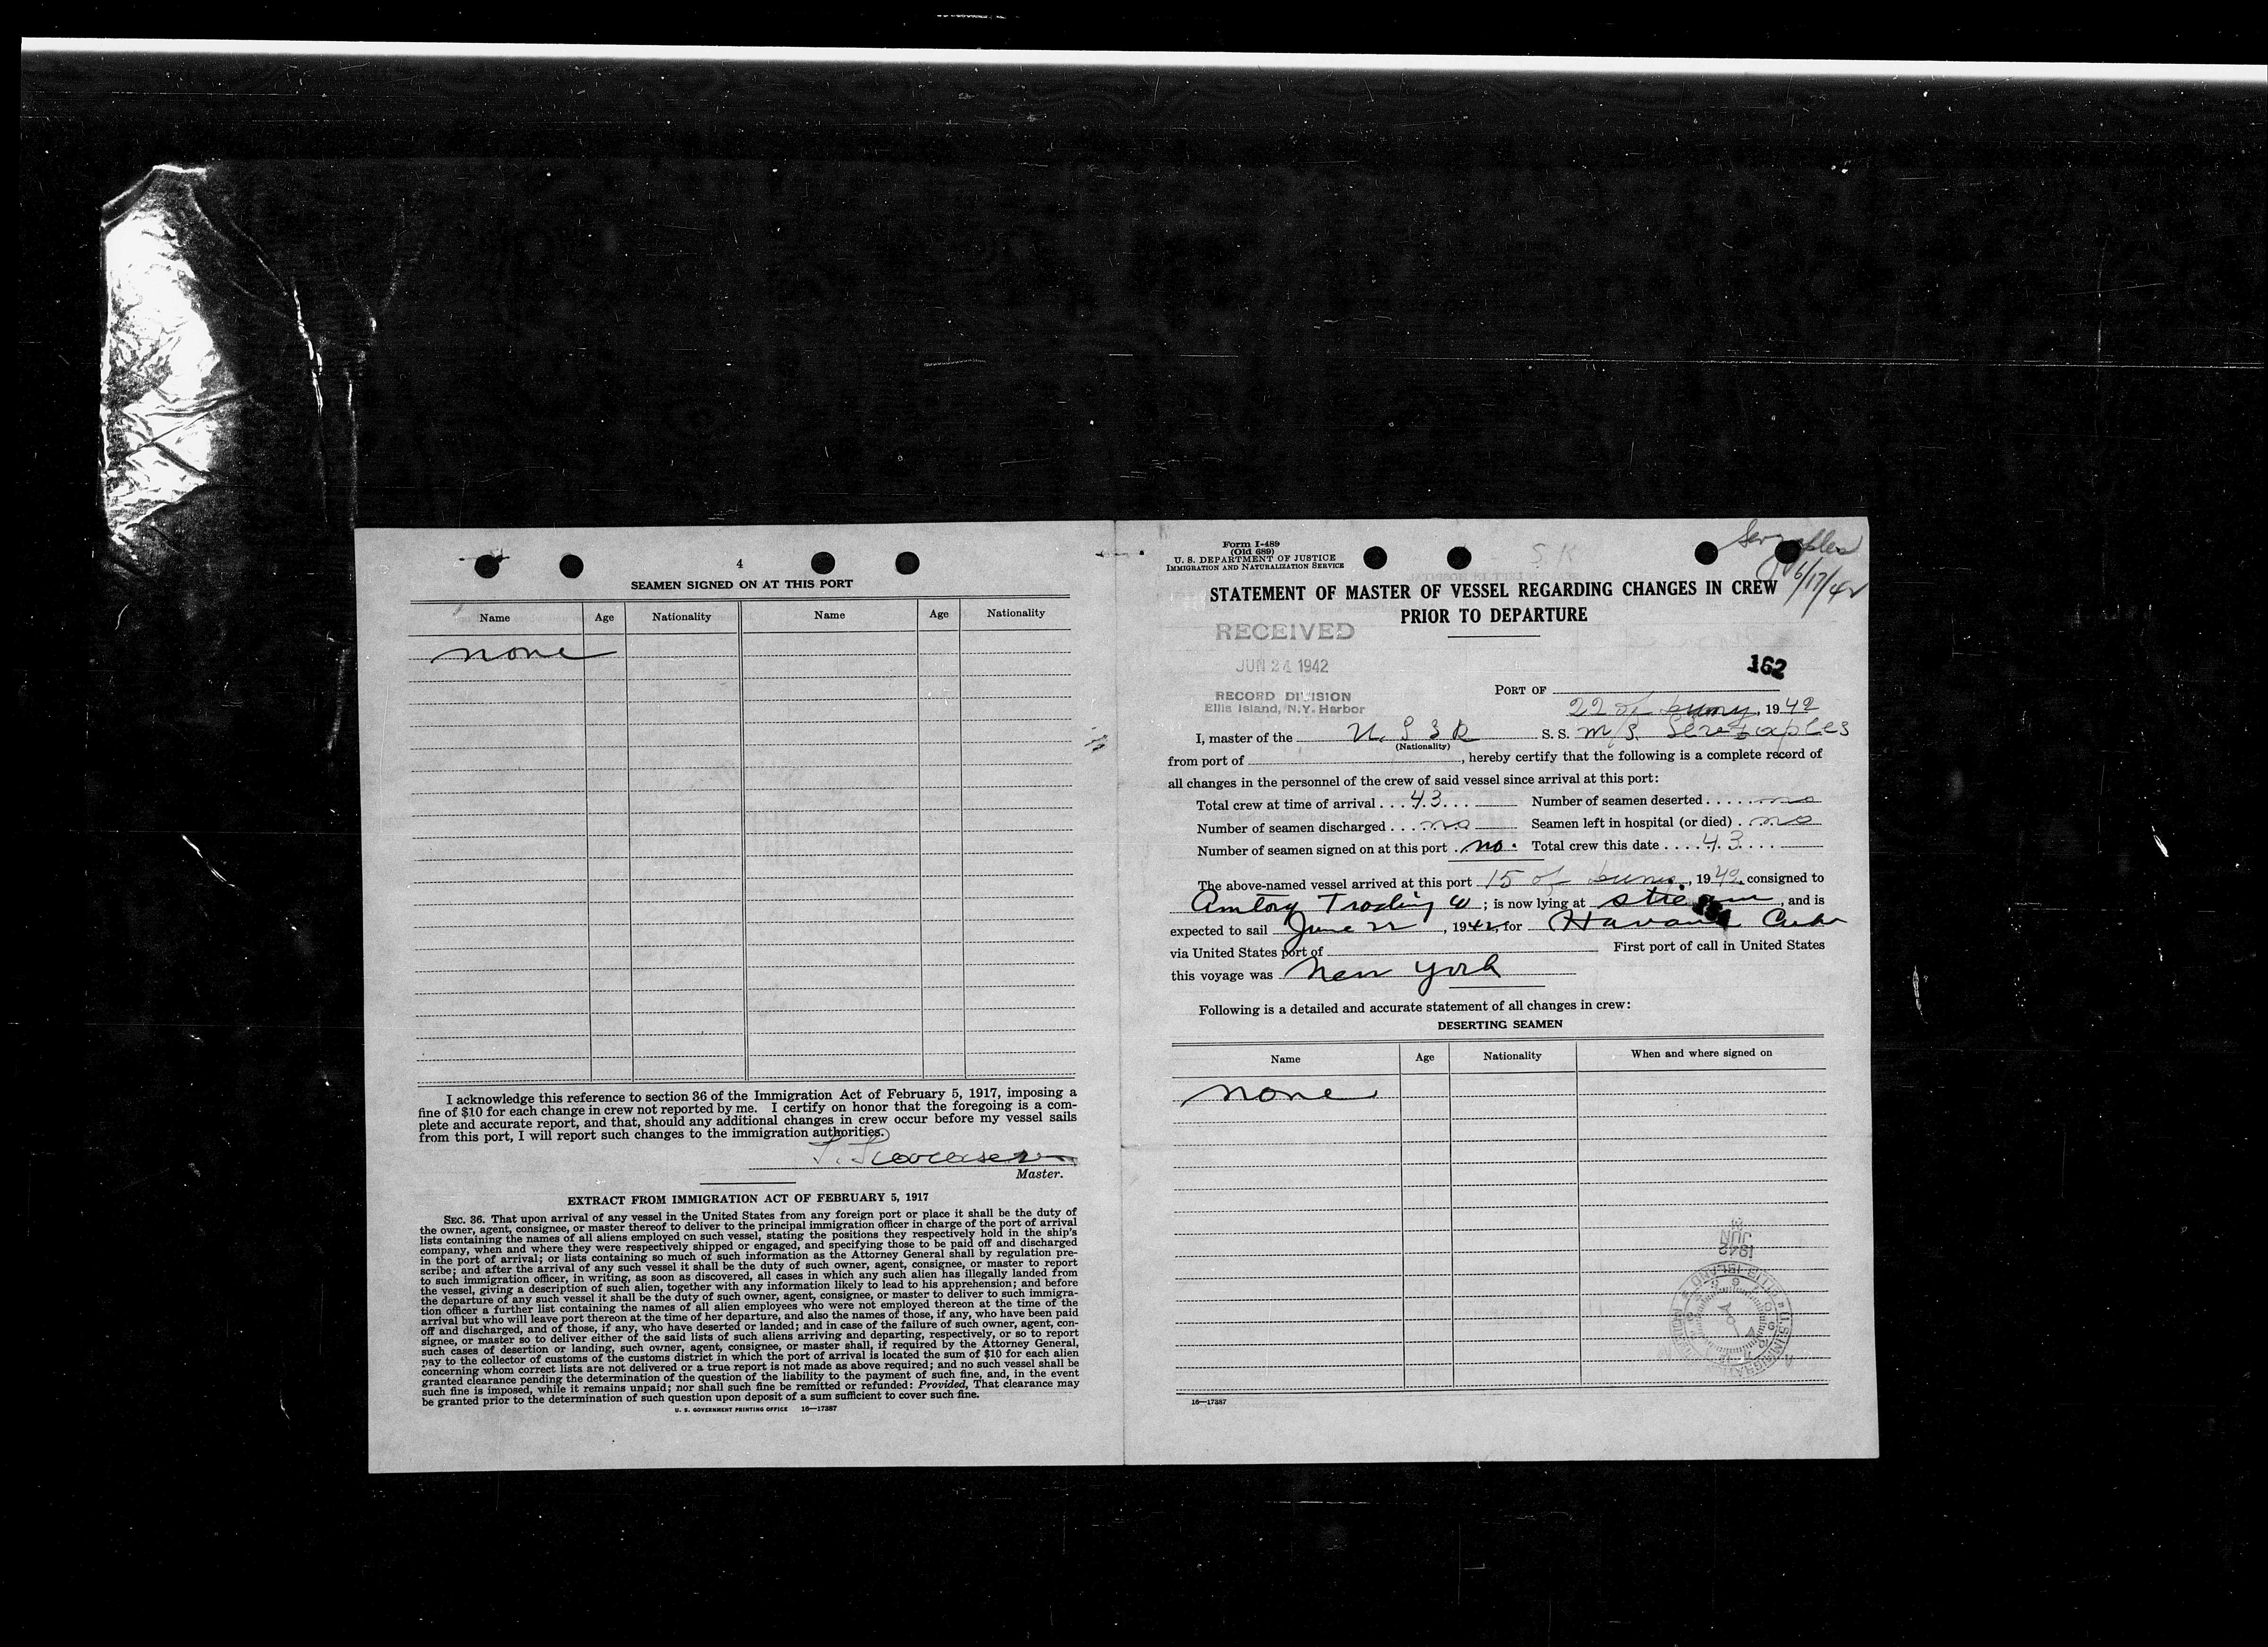 4
SEAMEN SIGNED ON AT THIS PORT
Name Age Nationality Name Age Nationality
none
I acknowledge this reference to section 36 of the Immigration Act of February 5, 1917, imposing a
fine of $10 for each change in crew not reported by me. I certify on honor that the foregoing is a com-
plete and accurate report, and that, should any additional changes in crew occur before my vessel sails
from this port, I will report such changes to the immigration authorities.
Master.
EXTRACT FROM IMMIGRATION ACT OF FEBRUARY 5, 1917
SEC. 36. That upon arrival of any vessel in the United States from any foreign port or place it shall be the duty of
the owner, agent, consignee, or master thereof to deliver to the principal immigration officer in charge of the port of arrival
lists containing the names of all aliens employed on such vessel, stating the positions they respectively hold in the ship's
company, when and where they were respectively shipped or engaged, and specifying those to be paid off and discharged
in the port of arrival; or lists containing so much of such information as the Attorney General shall by regulation pre-
scribe; and after the arrival of any such vessel it shall be the duty of such owner, agent, consignee, or master to report
to such immigration officer, in writing, as soon as discovered, all cases in which any such alien has illegally landed from
the vessel, giving a description of such alien, together with any information likely to lead to his apprehension; and before
the departure of any such vessel it shall be the duty of such owner, agent, consignee, or master to deliver to such immigra-
tion officer a further list containing the names of all alien employees who were not employed thereon at the time of the
arrival but who will leave port thereon at the time of her departure, and also the names of those, if any, who have been paid
off and discharged, and of those, if any, who have deserted or landed; and in case of the failure of such owner, agent, con-
signee, or master so to deliver either of the said lists of such aliens arriving and departing, respectively, or so to report
such cases of desertion or landing, such owner, agent, consignee, or master shall, if required by the Attorney General,
pay to the collector of customs of the customs district in which the port of arrival is located the sum of $10 for each alien
concerning whom correct lists are not delivered or a true report is not made as above required; and no such vessel shall be
granted clearance pending the determination of the question of the liability to the payment of such fine, and, in the event
such fine is imposed, while it remains unpaid; nor shall such fine be remitted or refunded: Provided, That clearance may
be granted prior to the determination of such question upon deposit of a sum sufficient to cover such fine.
U. S. GOVERNMENT PRINTING OFFICE 16—17387
Form I-489
(Old 689)
U. S. DEPARTMENT OF JUSTICE
IMMIGRATION AND NATURALIZATION SERVICE
SK
6/17/42
STATEMENT OF MASTER OF VESSEL REGARDING CHANGES IN CREW
PRIOR TO DEPARTURE
RECEIVED
JUN 24 1942
RECORD DIVISION
Ellis Island, N.Y. Harbor
162
PORT OF
22 of , 1942
I, master of the U.S.S.R S. S. m/s.
(Nationality)
from port of , hereby certify that the following is a complete record of
all changes in the personnel of the crew of said vessel since arrival at this port:
Total crew at time of arrival . . . 43 . . . Number of seamen deserted . . . . . . no
Number of seamen discharged . . . no Seamen left in hospital (or died) . no
Number of seamen signed on at this port . no. Total crew this date . . . . 43 . . . .
The above-named vessel arrived at this port 15 of , 1942, consigned to
Amtorg Trading Co ; is now lying at stream, and is
expected to sail June 22, 1942, for Havana Cuba
via United States port of First port of call in United States
this voyage was New York
Following is a detailed and accurate statement of all changes in crew:
DESERTING SEAMEN
Name Age Nationality When and where signed on
none
JUN
1942
16—17387